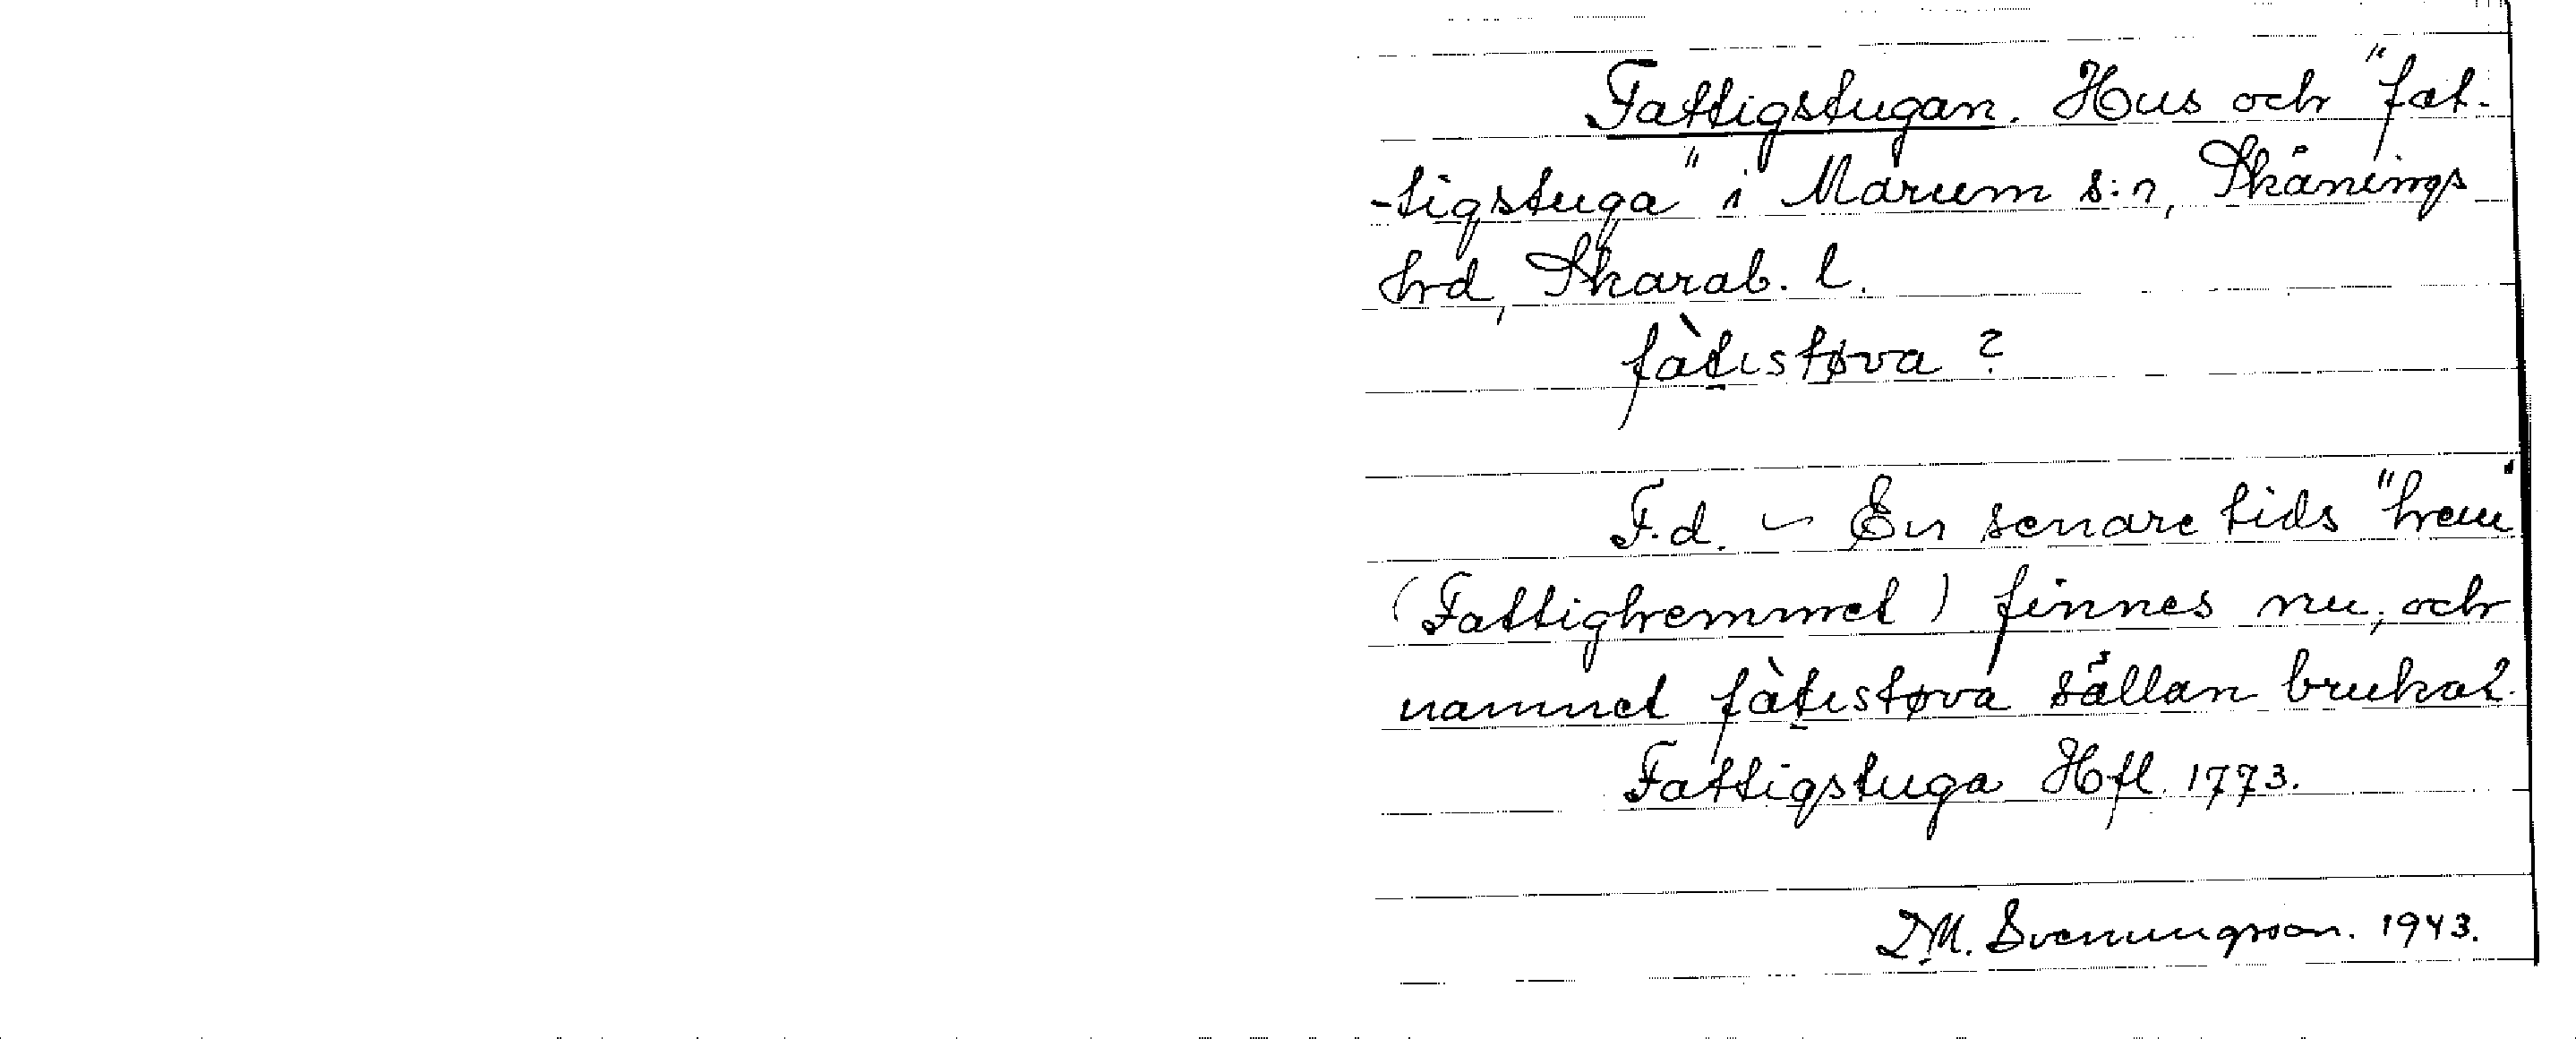 Fattigstugan. Hus och "fat-
-tigstuga" i Marum s:n, Skånings
hrd, Skarab. l.
fàtıstøva ?
F.d. – En senare tids "hem"
(Fattighemmet) finnes nu, och
namnet fàtıstøva sällan brukat.
Fattigstuga Hfl. 1773.
Svenungsson. 1943.